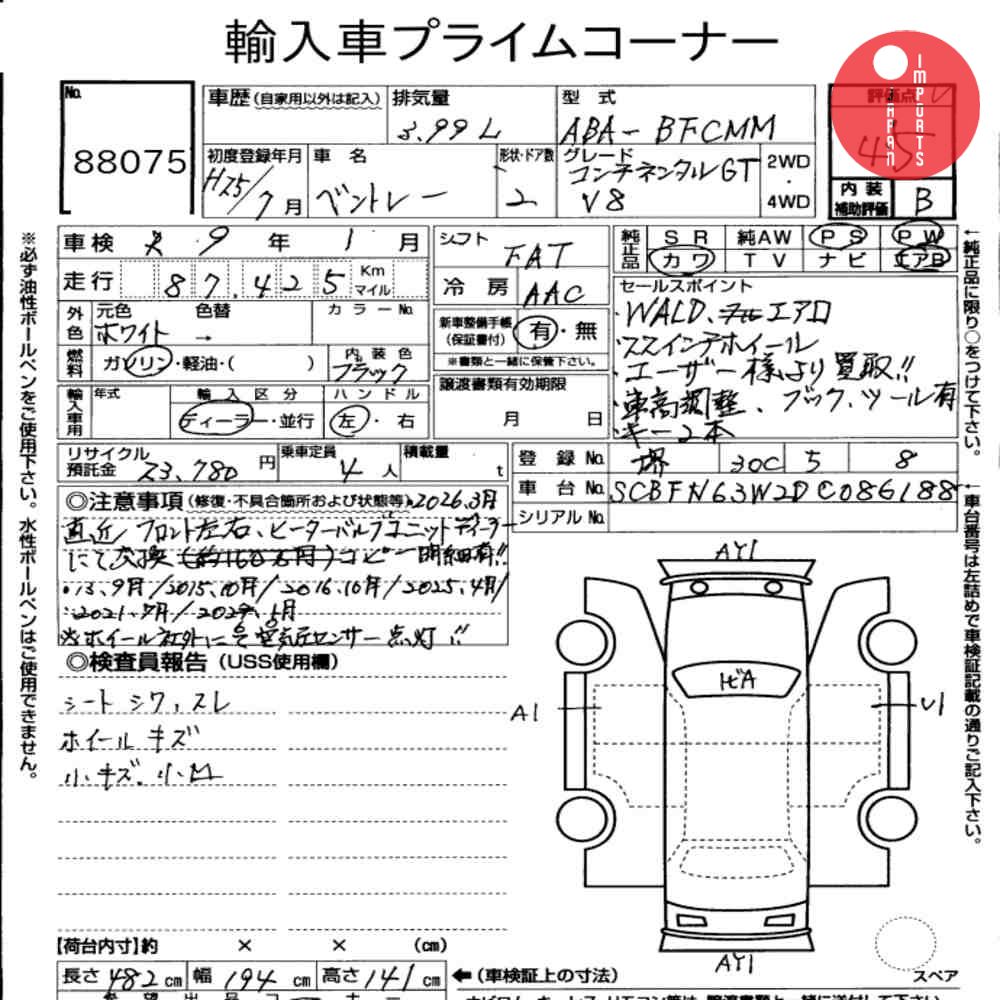 輸入車プライムコーナー
JAPAN IMPORTS
No. 88075
車歴 (自家用以外は記入)
排気量 3.99 L
型式 ABA-BFCMM
評価点 4.5
初度登録年月 H25/7月
車名 ベントレー
形状・ドア数 2
グレード コンチネンタルGT V8
2WD・4WD
内装補助評価 B
※必ず油性ボールペンをご使用下さい。水性ボールペンはご使用できません。
車検 9年 1月
シフト FAT
純正品 SR 純AW PS PW
カワ TV ナビ エアB
走行 87.425 Km マイル
冷房 AAC
外色 元色 ホワイト 色替 →
カラーNo.
新車整備手帳(保証書付) 有・無
※書類と一緒に保管下さい。
燃料 ガソリン・軽油・( )
内装色 ブラック
譲渡書類有効期限 月 日
輸入車用 年式
輸入区分 ディーラー・並行
ハンドル 左・右
セールスポイント
・WALD. エアロ
・スズインチホイール
・ユーザー様より買取!!
・車高調整、ブック、ツール有
・キー2本
←純正品に限り○をつけて下さい。
リサイクル預託金 23,780円
乗車定員 4人
積載量 t
登録No. 堺 300 5 8
車台No. SCBFN63W2DC086188
シリアルNo.
←車台番号は左詰めで車検証記載の通りご記入下さい。
◎注意事項 (修復・不具合箇所および状態等) 2026.3月
直近 フロント左右、ヒーターバルブユニット ディーラー
にて交換 (約160万円) コピー明細有!!
・13.9月/2015.10月/2016.10月/2025.4月/
2021.7月/2024.5月
※ホイール社外に 空気圧センサー点灯!!
◎検査員報告 (USS使用欄)
シート シワ、スレ
ホイール キズ
小キズ、小凹
AY1
ヒビA
A1
U1
AY1
スペア
【荷台内寸】約 × × (cm)
長さ 482 cm 幅 194 cm 高さ 141 cm
←(車検証上の寸法)